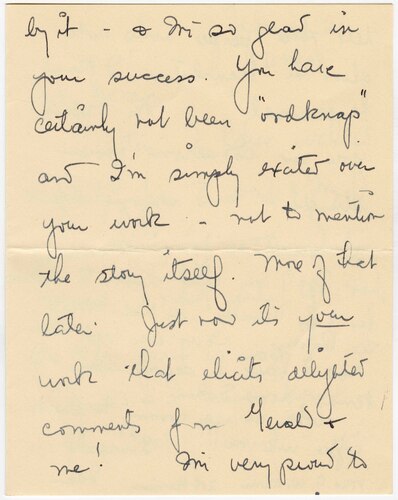 by it - & I'm so glad in
your success. You have
certainly not been "ordknap"
and I'm simply excited over
your work - not to mention
the story itself. More of that
later. Just now it's your
work that elicits delighted
comments from Gerald &
me! I'm very proud to